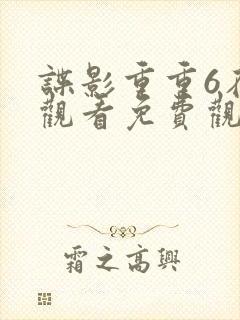 諜影重重6在
觀看免費觀
霜之高興